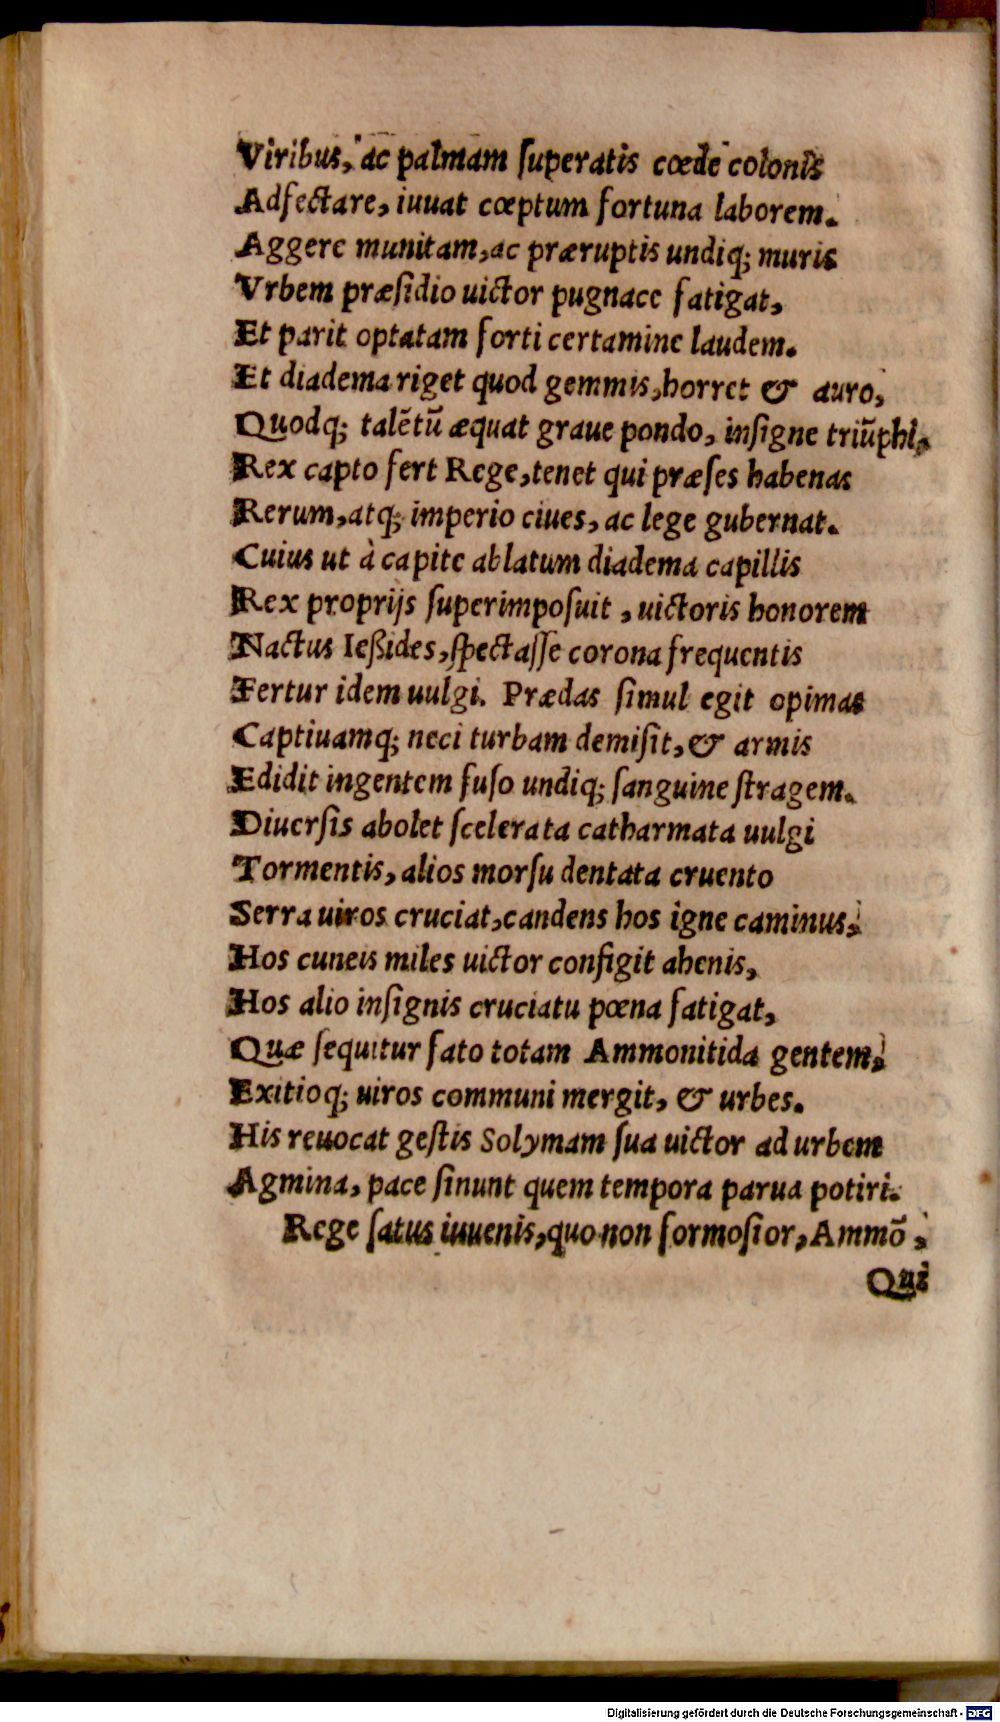 Viribus, ac palmam ſuperatis cœde colonis
Adfectare, iuuat cœptum fortuna laborem.
Aggere munitam, ac præruptis undiq; muris
Vrbem præſidio uictor pugnace fatigat,
Et parit optatam forti certamine laudem.
Et diadema riget quod gemmis, horret & auro,
Quodq; talētū æquat graue pondo, inſigne triūphi,
Rex capto fert Rege, tenet qui præſes habenas
Rerum, atq; imperio ciues, ac lege gubernat.
Cuius ut à capite ablatum diadema capillis
Rex proprijs ſuperimpoſuit, uictoris honorem
Nactus Ießides, ſpectaſſe corona frequentis
Fertur idem uulgi. Prædas ſimul egit opimas
Captiuamq; neci turbam demiſit, & armis
Edidit ingentem fuſo undiq; ſanguine ſtragem.
Diuerſis abolet ſcelerata catharmata uulgi
Tormentis, alios morſu dentata cruento
Serra uiros cruciat, candens hos igne caminus,
Hos cuneis miles uictor configit ahenis,
Hos alio inſignis cruciatu pœna fatigat,
Quæ ſequitur fato totam Ammonitida gentem,
Exitioq; uiros communi mergit, & urbes.
His reuocat geſtis Solymam ſua uictor ad urbem
Agmina, pace ſinunt quem tempora parua potiri.
Rege ſatus iuuenis, quo non formoſior, Ammō,
Qui
Digitalisierung gefördert durch die Deutsche Forschungsgemeinschaft - DFG